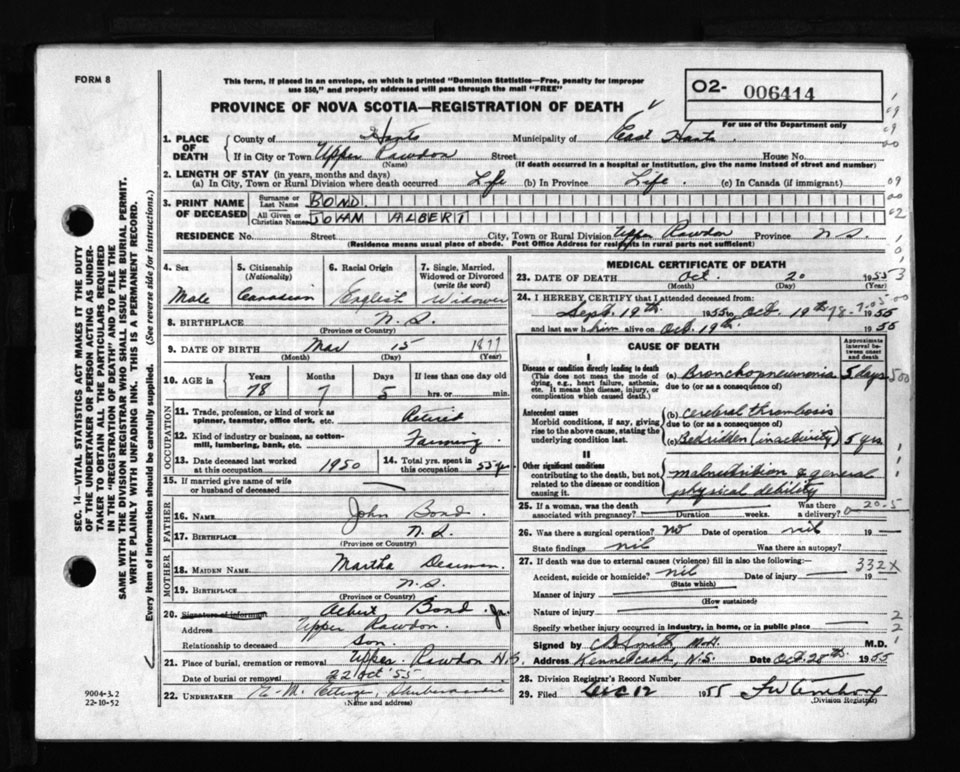 FORM 8
This form, if placed in an envelope, on which is printed "Dominion Statistics—Free, penalty for improper
use $50," and properly addressed will pass through the mail "FREE"
PROVINCE OF NOVA SCOTIA—REGISTRATION OF DEATH
02- 006414
For use of the Department only
1. PLACE OF DEATH
County of Hants Municipality of East Hants.
If in City or Town Upper Rawdon Street House No.
(Name) (If death occurred in a hospital or institution, give the name instead of street and number)
2. LENGTH OF STAY (in years, months and days)
(a) In City, Town or Rural Division where death occurred Life (b) In Province Life. (c) In Canada (if immigrant)
3. PRINT NAME OF DECEASED
Surname or Last Name BOND.
All Given or Christian Names ALBERT
RESIDENCE No. Street City, Town or Rural Division Upper Rawdon Province N.S.
(Residence means usual place of abode. Post Office Address for residents in rural parts not sufficient)
4. Sex
Male
5. Citizenship (Nationality)
Canadian
6. Racial Origin
English
7. Single, Married, Widowed or Divorced (write the word)
Widower
8. BIRTHPLACE N.S.
(Province or Country)
9. DATE OF BIRTH Mar 15 1877
(Month) (Day) (Year)
10. AGE in
Years Months Days If less than one day old
78 7 5 hrs. or min.
OCCUPATION
11. Trade, profession, or kind of work as spinner, teamster, office clerk, etc. Retired
12. Kind of industry or business, as cotton-mill, lumbering, bank, etc. Farming.
13. Date deceased last worked at this occupation 1950
14. Total yrs. spent in this occupation 55 yrs
15. If married give name of wife or husband of deceased
FATHER
16. NAME John Bond.
17. BIRTHPLACE N.S.
(Province or Country)
MOTHER
18. MAIDEN NAME Martha
19. BIRTHPLACE N.S.
(Province or Country)
20. Signature of informant Albert Bond Jr.
Address Upper Rawdon.
Relationship to deceased Son.
21. Place of burial, cremation or removal Upper Rawdon N.S.
Date of burial or removal 22 Oct '55
22. UNDERTAKER E. M. Ettinger, Shubenacadie
(Name and address)
MEDICAL CERTIFICATE OF DEATH
23. DATE OF DEATH Oct. 20 1955
(Month) (Day)
24. I HEREBY CERTIFY that I attended deceased from:
Sept. 19th 1955 to Oct. 19th 1955
and last saw him alive on Oct. 19th. 1955
CAUSE OF DEATH
Approximate interval between onset and death
I
Disease or condition directly leading to death
(This does not mean the mode of dying, e.g., heart failure, asthenia, etc. It means the disease, injury, or complication which caused death.)
(a) Bronchopneumonia 5 days
due to (or as a consequence of)
Antecedent causes
Morbid conditions, if any, giving rise to the above cause, stating the underlying condition last.
(b) cerebral thrombosis
due to (or as a consequence of)
(c) Bedridden (inactivity) 5 yrs.
II
Other significant conditions
contributing to the death, but not related to the disease or condition causing it.
malnutrition & general
physical debility
25. If a woman, was the death associated with pregnancy? Duration weeks. Was there a delivery?
26. Was there a surgical operation? No Date of operation nil 19
State findings nil Was there an autopsy?
27. If death was due to external causes (violence) fill in also the following:—
332X
Accident, suicide or homicide? nil Date of injury 19
(State which)
Manner of injury
(How sustained)
Nature of injury
Specify whether injury occurred in industry, in home, or in public place
Signed by C B Smith, M.D. M.D.
Address Kennetcook, N.S. Date Oct. 28th. 1955
28. Division Registrar's Record Number
29. Filed Dec 12 1955
(Division Registrar)
SEC. 14—VITAL STATISTICS ACT MAKES IT THE DUTY
OF THE UNDERTAKER OR PERSON ACTING AS UNDER-
TAKER TO OBTAIN ALL THE PARTICULARS REQUIRED
IN THE "REGISTRATION OF DEATH" AND TO FILE THE
SAME WITH THE DIVISION REGISTRAR WHO SHALL ISSUE THE BURIAL PERMIT.
WRITE PLAINLY WITH UNFADING INK. THIS IS A PERMANENT RECORD.
Every item of information should be carefully supplied. (See reverse side for instructions.)
9004-3.2
22-10-52